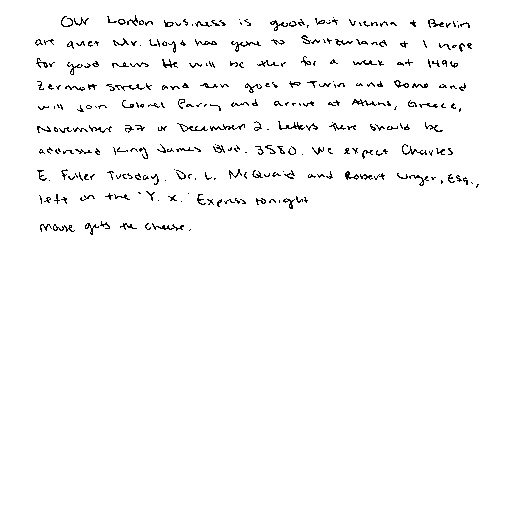 Our London business is good, but Vienna + Berlin
are quiet Mr. Lloyd has gone to Switzerland + I hope
for good news He will be ther for a week at 1496
Zermott Street and then goes to Turin and Rome and
will join Colonel Parry and arrive at Athens, Greece,
November 27 or December 2. Letters there should be
addressed King James Blvd. 3580. We expect Charles
E. Fuller Tuesday. Dr. L. McQuaid and Robert Unger, Esq.,
left on the "Y. X." Express tonight
mouse gets the cheese.